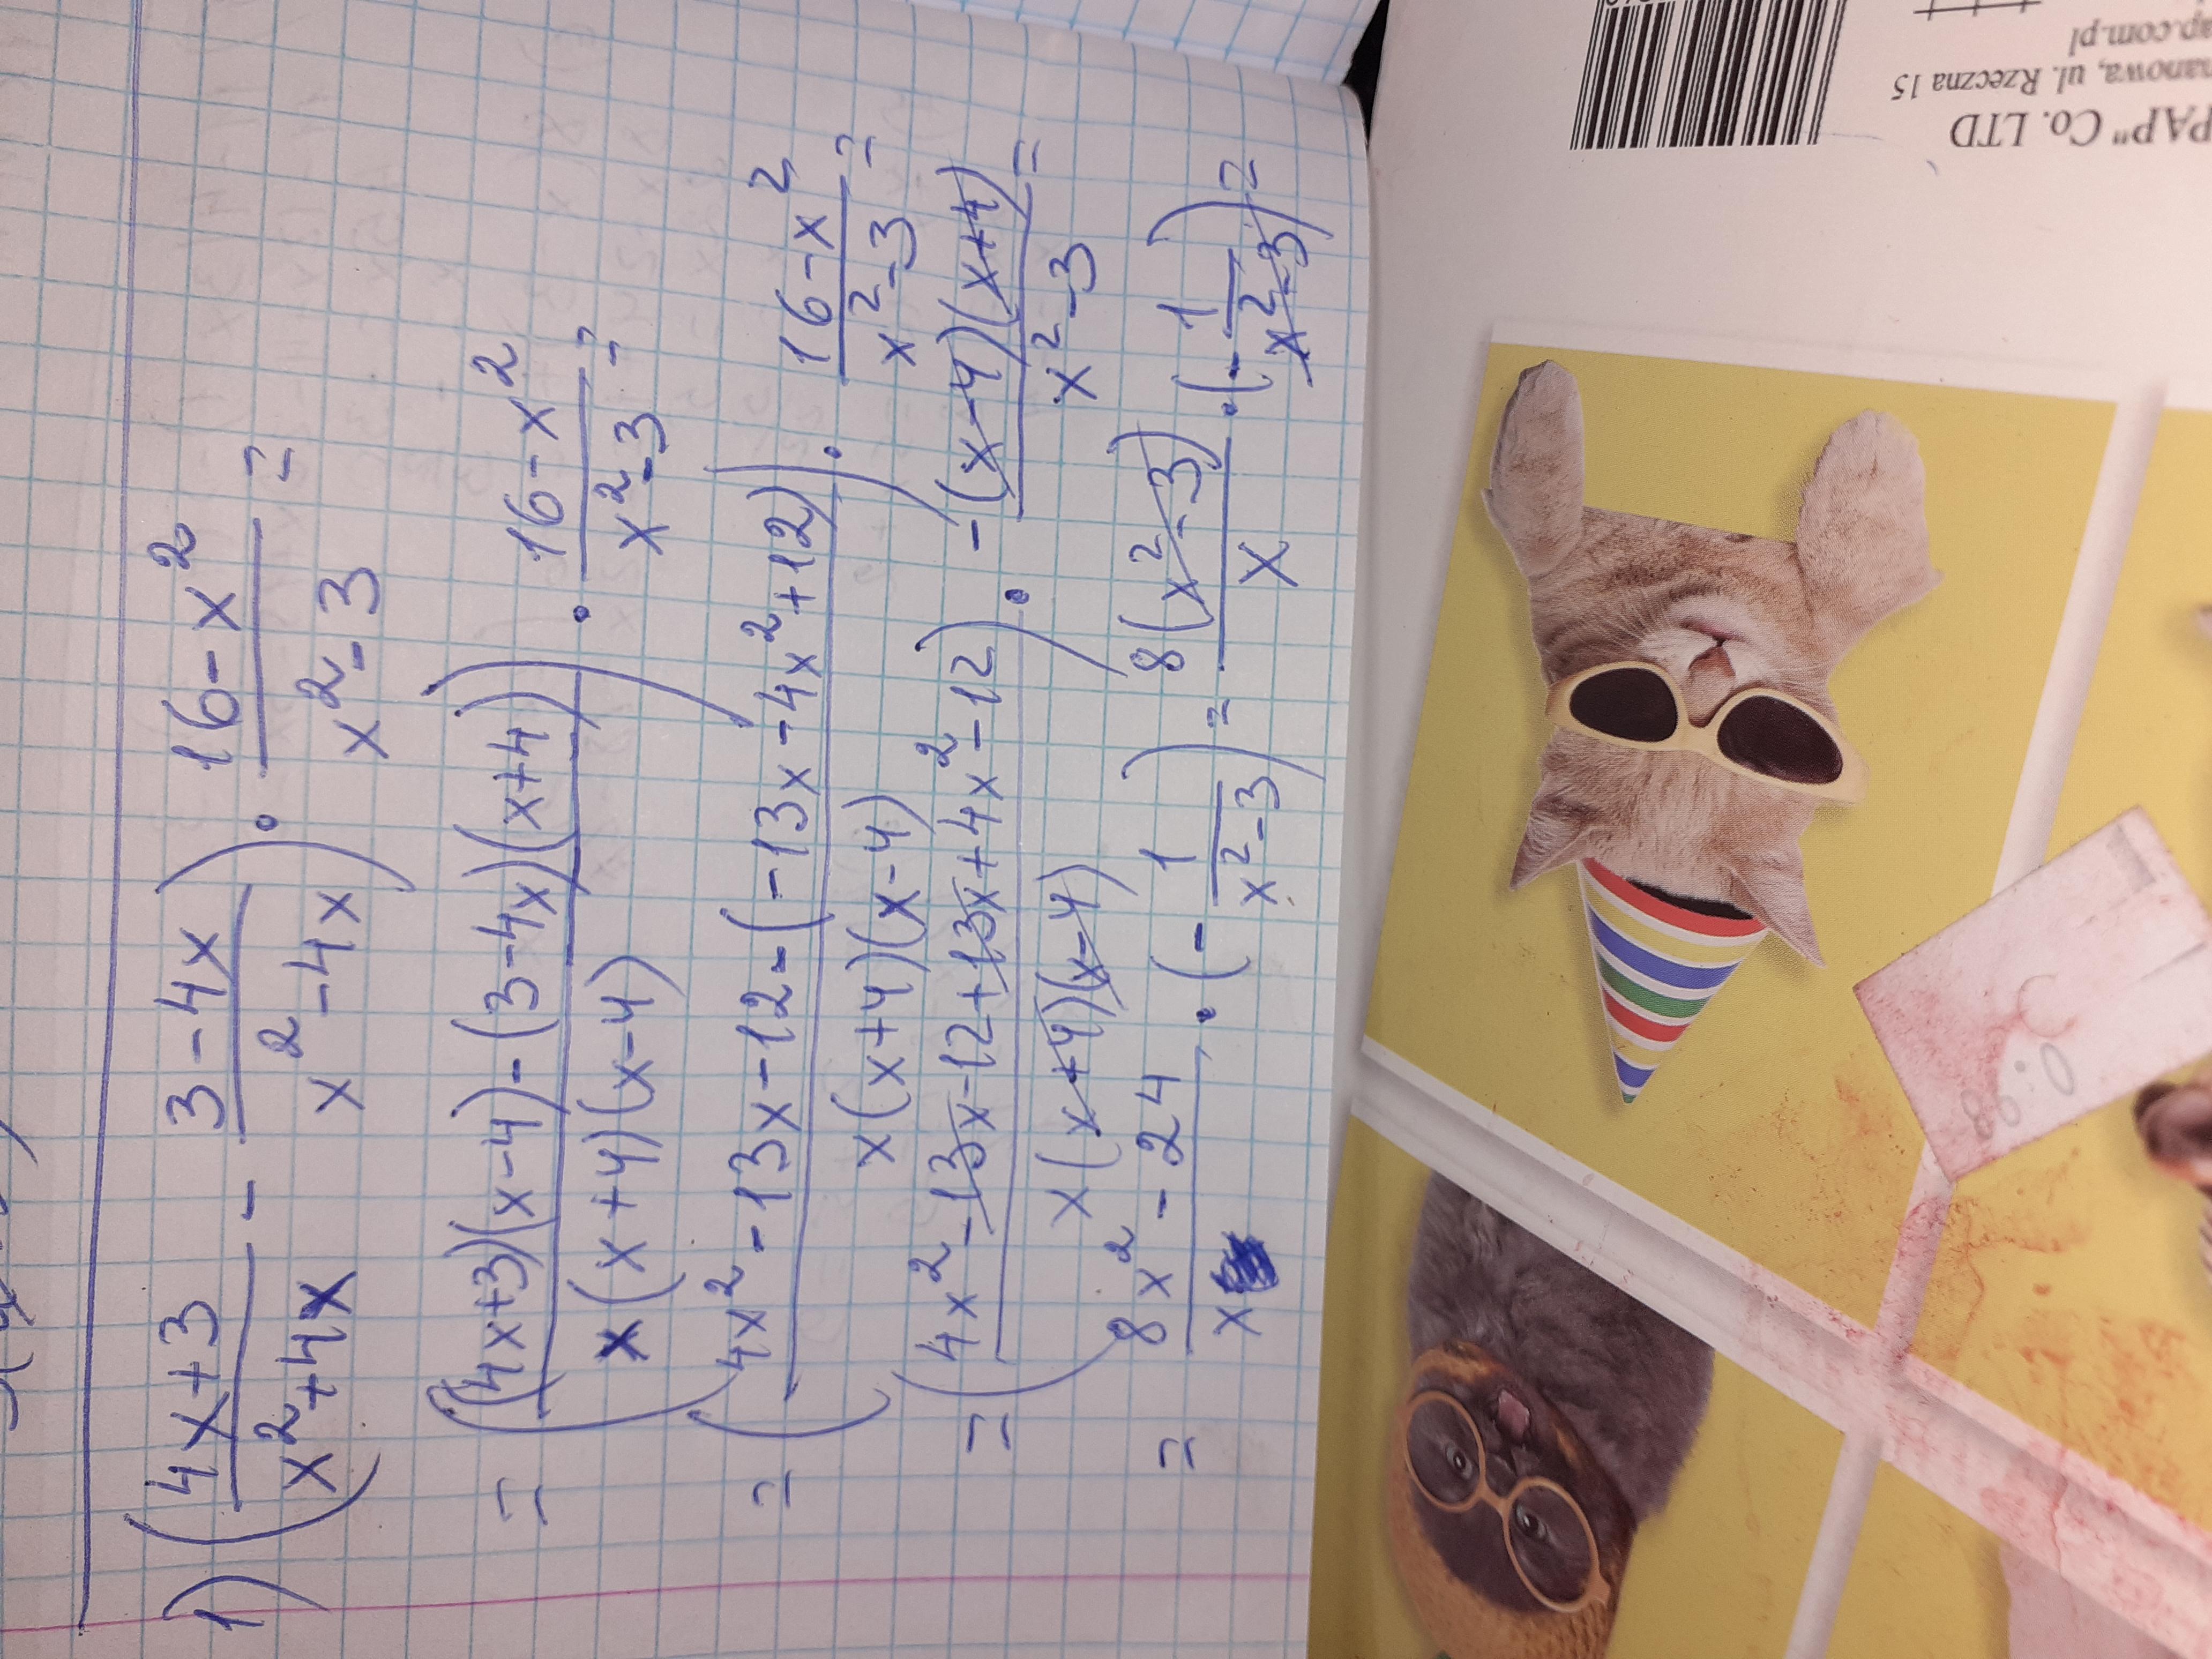 1) ((4x+3)/(x²+4x) - (3-4x)/(x²-4x)) · (16-x²)/(x²-3) =
= (((4x+3)(x-4)-(3-4x)(x+4))/(x(x+4)(x-4))) · (16-x²)/(x²-3) =
= ((4x²-13x-12-(-13x-4x²+12))/(x(x+4)(x-4))) · (16-x²)/(x²-3) =
= ((4x²-13x-12+13x+4x²-12)/(x(x+4)(x-4))) · (-(x-4)(x+4))/(x²-3) =
= (8x²-24)/x · (-1/(x²-3)) = 8(x²-3)/x · (-1/(x²-3)) =
PAP" Co. LTD
ul. Rzeczna 15
0.98